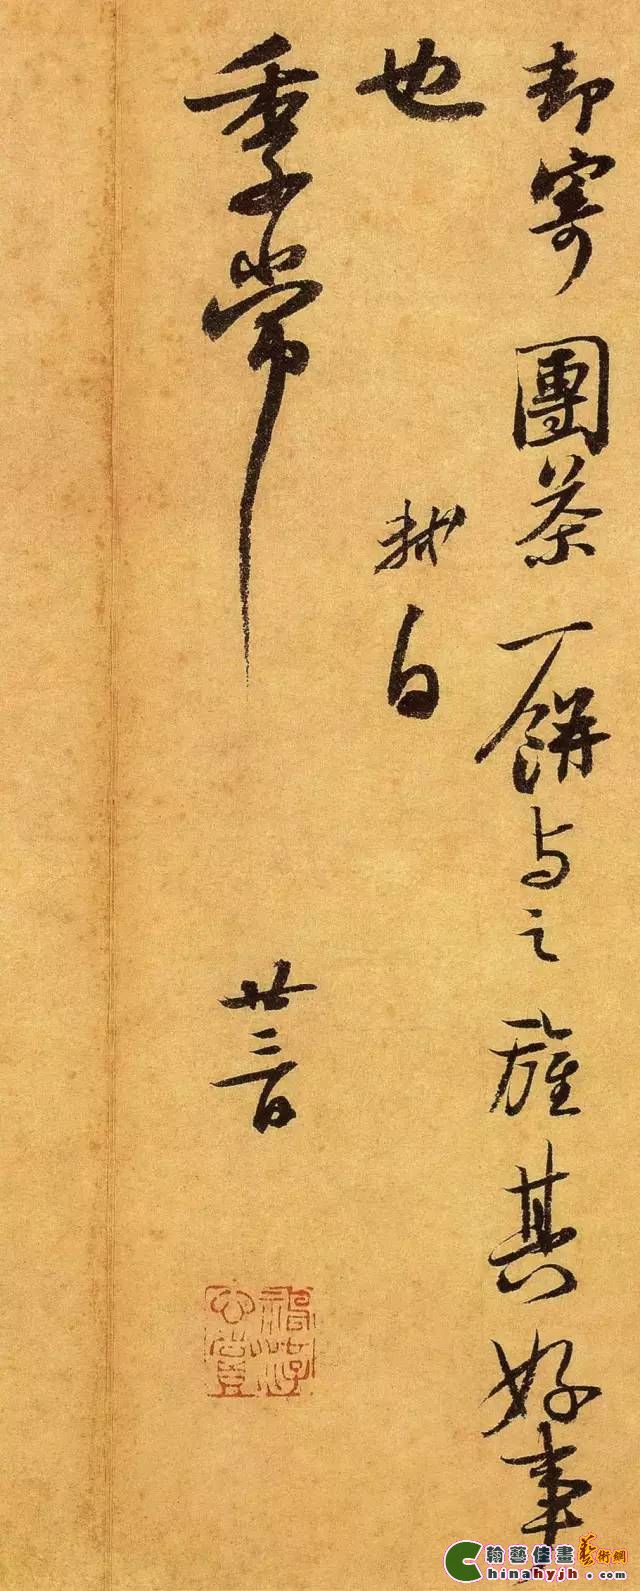 却寄團茶一餅与之旌其好事
也 軾白
季常 廿三日
翰藝佳畫藝術網
Chinahyjh.com